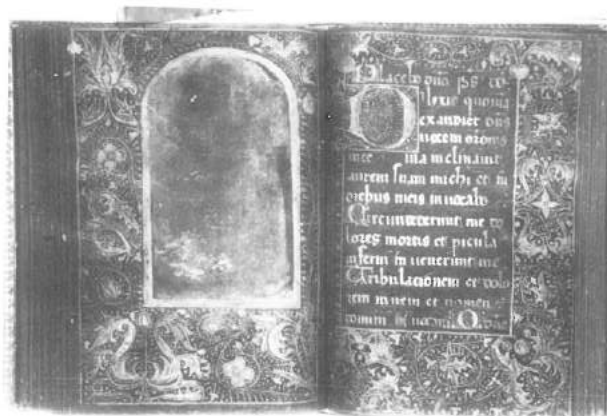 Placebo dño ps
Dilexi quoniā
exaudiet dñs
vocem oronis
mee inclinauit
aurem suam michi et in
diebus meis inuocabo
Circumdederunt me do
lores mortis et picula
inferni in uenerunt me
Tribulacionem et dolo
rem inueni et nomen
O